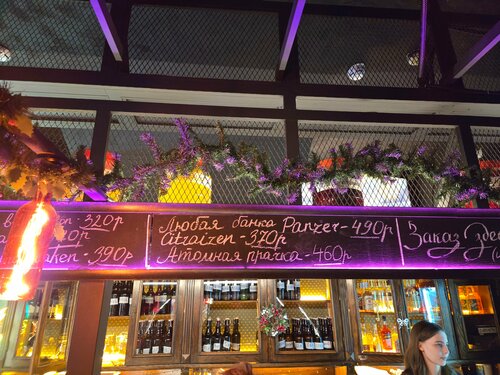 320р
390р
Любая банка Panzer-490р
Citraizen-370р
Атомная прачка-460р
Заказ